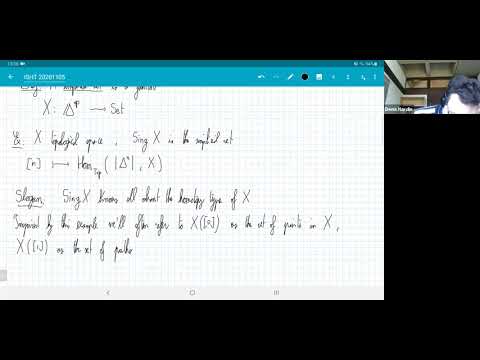 ISHT 20201105
Denis Nardin
X : Δ^op → Set
Ex: X topological space, Sing X is the simplicial set
[n] ↦ Hom_Top ( |Δ^n| , X )
Slogan: Sing X knows all about the homotopy type of X
Inspired by this example we'll often refer to X([0]) as the set of points in X,
X([1]) as the set of paths